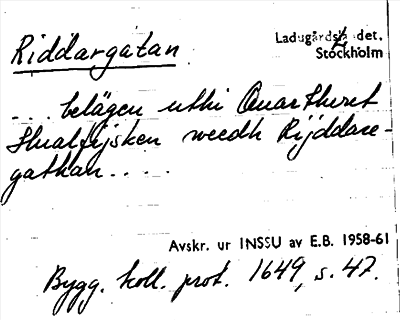 Riddargatan
Ladugårdslandet.
Stockholm
... belägen uthi Quarthæret
Hualfijsken weedh Rijddare-
gathan.....
Avskr. ur INSSU av E.B. 1958-61
Bygg. koll. prot. 1649, s. 47.